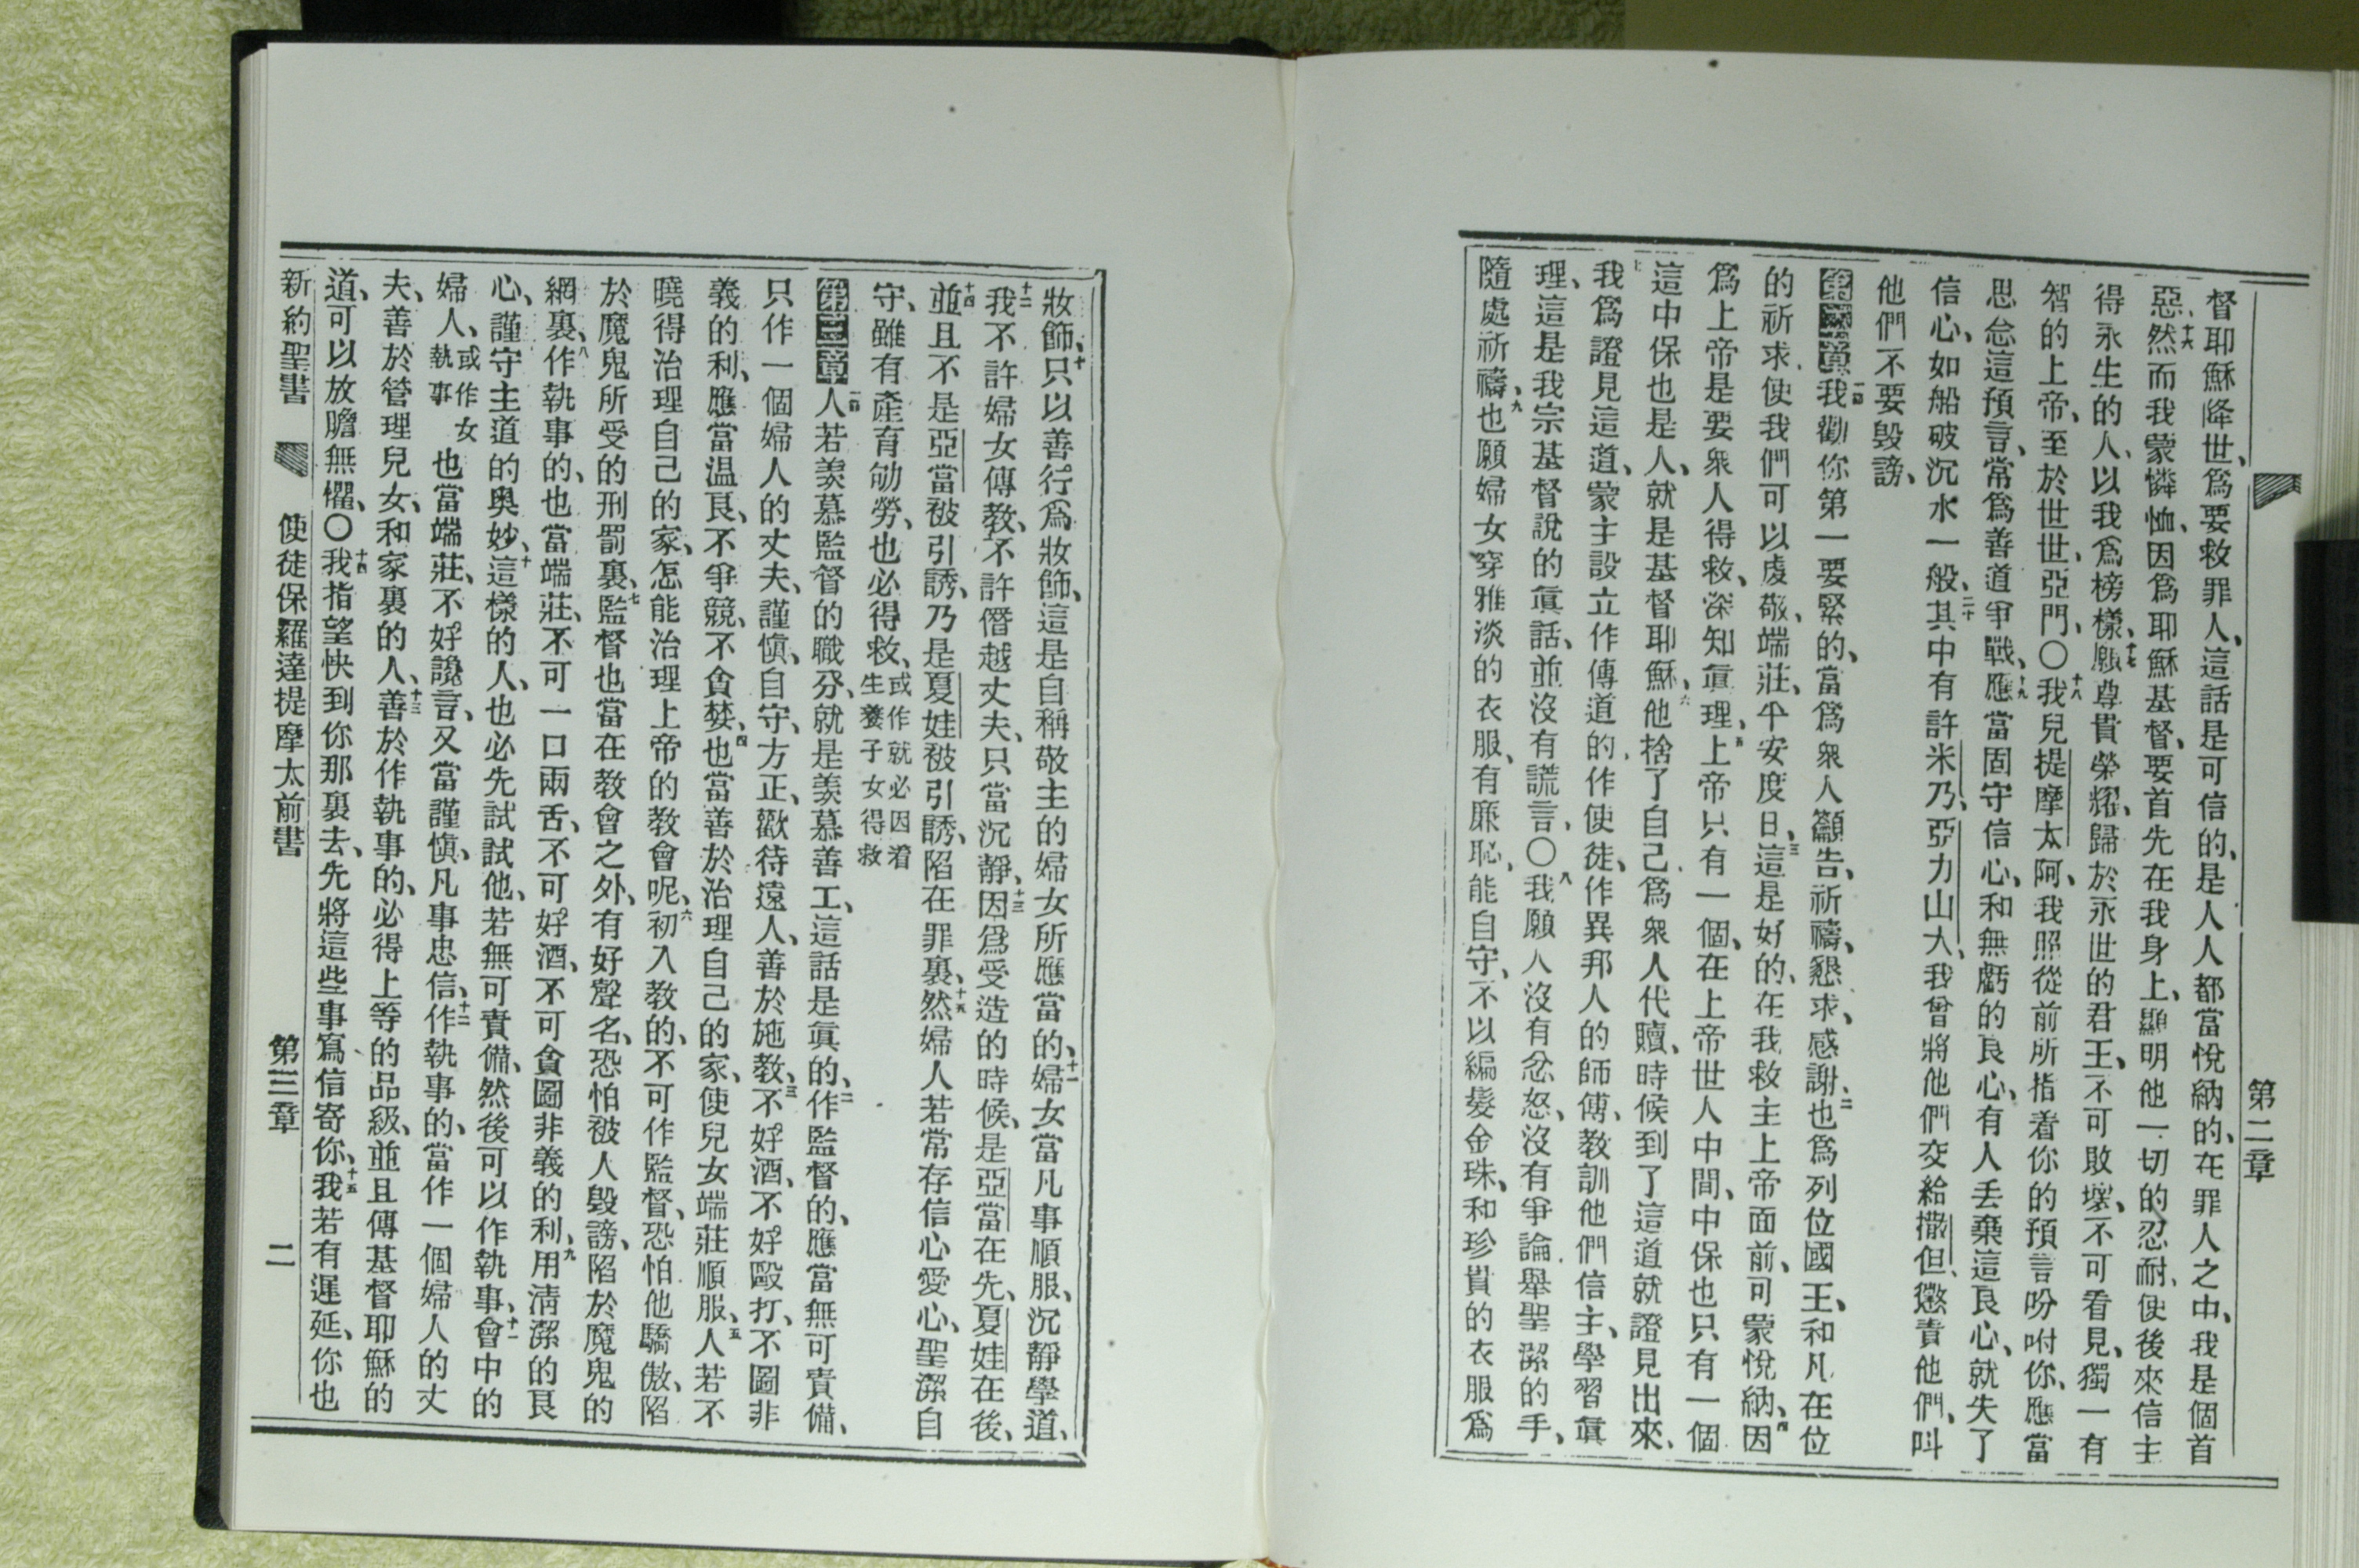 第二章
督耶穌降世、爲要救罪人、這話是可信的、是人人都當悅納的、在罪人之中、我是個首
惡、十六然而我蒙憐恤、因爲耶穌基督、要首先在我身上、顯明他一切的忍耐、使後來信主
得永生的人、以我爲榜樣、十七願尊貴榮耀、歸於永世的君王、不可敗壞、不可看見、獨一有
智的上帝、至於世世、亞門、〇十八我兒提摩太阿、我照從前所指着你的預言吩咐你、應當
思念這預言、常爲善道爭戰、十九應當固守信心、和無虧的良心、有人丟棄這良心、就失了
信心、如船破沉水一般、二十其中有許米乃、亞力山大、我曾將他們交給撒但、懲責他們、叫
他們不要毀謗、
第二章一節我勸你第一要緊的、當爲衆人籲告、祈禱、懇求、感謝、二也爲列位國王、和凡在位
的祈求、使我們可以虔敬、端莊、平安度日、三這是好的、在我救主上帝面前、可蒙悅納、四因
爲上帝是要衆人得救、深知眞理、五上帝只有一個、在上帝世人中間、中保也只有一個
這中保也是人、就是基督耶穌、六他捨了自己爲衆人代贖、時候到了這道就證見出來、
七我爲證見這道、蒙主設立作傳道的、作使徒、作異邦人的師傅、教訓他們信主、學習眞
理、這是我宗基督說的眞話、並沒有謊言、〇八我願人沒有忿怒、沒有爭論、舉聖潔的手、
隨處祈禱、九也願婦女穿雅淡的衣服、有廉恥、能自守、不以編髮金珠、和珍貴的衣服爲
妝飾、十只以善行爲妝飾、這是自稱敬主的婦女所應當的、十一婦女當凡事順服、沉靜學道、
十二我不許婦女傳教、不許僭越丈夫、只當沉靜、十三因爲受造的時候、是亞當在先、夏娃在後、
十四並且不是亞當被引誘、乃是夏娃被引誘、陷在罪裏、十五然婦人若常存信心愛心、聖潔自
守、雖有產育劬勞、也必得救、或作就必因着生養子女得救
第三章一節人若羨慕監督的職分、就是羨慕善工、這話是眞的、二作監督的、應當無可責備、
只作一個婦人的丈夫、謹愼、自守、方正、歡待遠人、善於施教、三不好酒、不好毆打、不圖非
義的利、應當温良、不爭競、不貪婪、四也當善於治理自己的家、使兒女端莊順服、五人若不
曉得治理自己的家、怎能治理上帝的教會呢、六初入教的、不可作監督、恐怕他驕傲、陷
於魔鬼所受的刑罰裏、七監督也當在教會之外、有好聲名、恐怕被人毀謗、陷於魔鬼的
網裏、八作執事的、也當端莊、不可一口兩舌、不可好酒、不可貪圖非義的利、九用清潔的良
心、謹守主道的奧妙、十這樣的人、也必先試試他、若無可責備、然後可以作執事、十一會中的
婦人、或作女執事也當端莊、不好讒言、又當謹愼、凡事忠信、十二作執事的、當作一個婦人的丈
夫、善於管理兒女、和家裏的人、十三善於作執事的、必得上等的品級、並且傳基督耶穌的
道、可以放膽無懼、〇十四我指望快到你那裏去、先將這些事寫信寄你、十五我若有遲延、你也
新約聖書 使徒保羅達提摩太前書 第三章 二